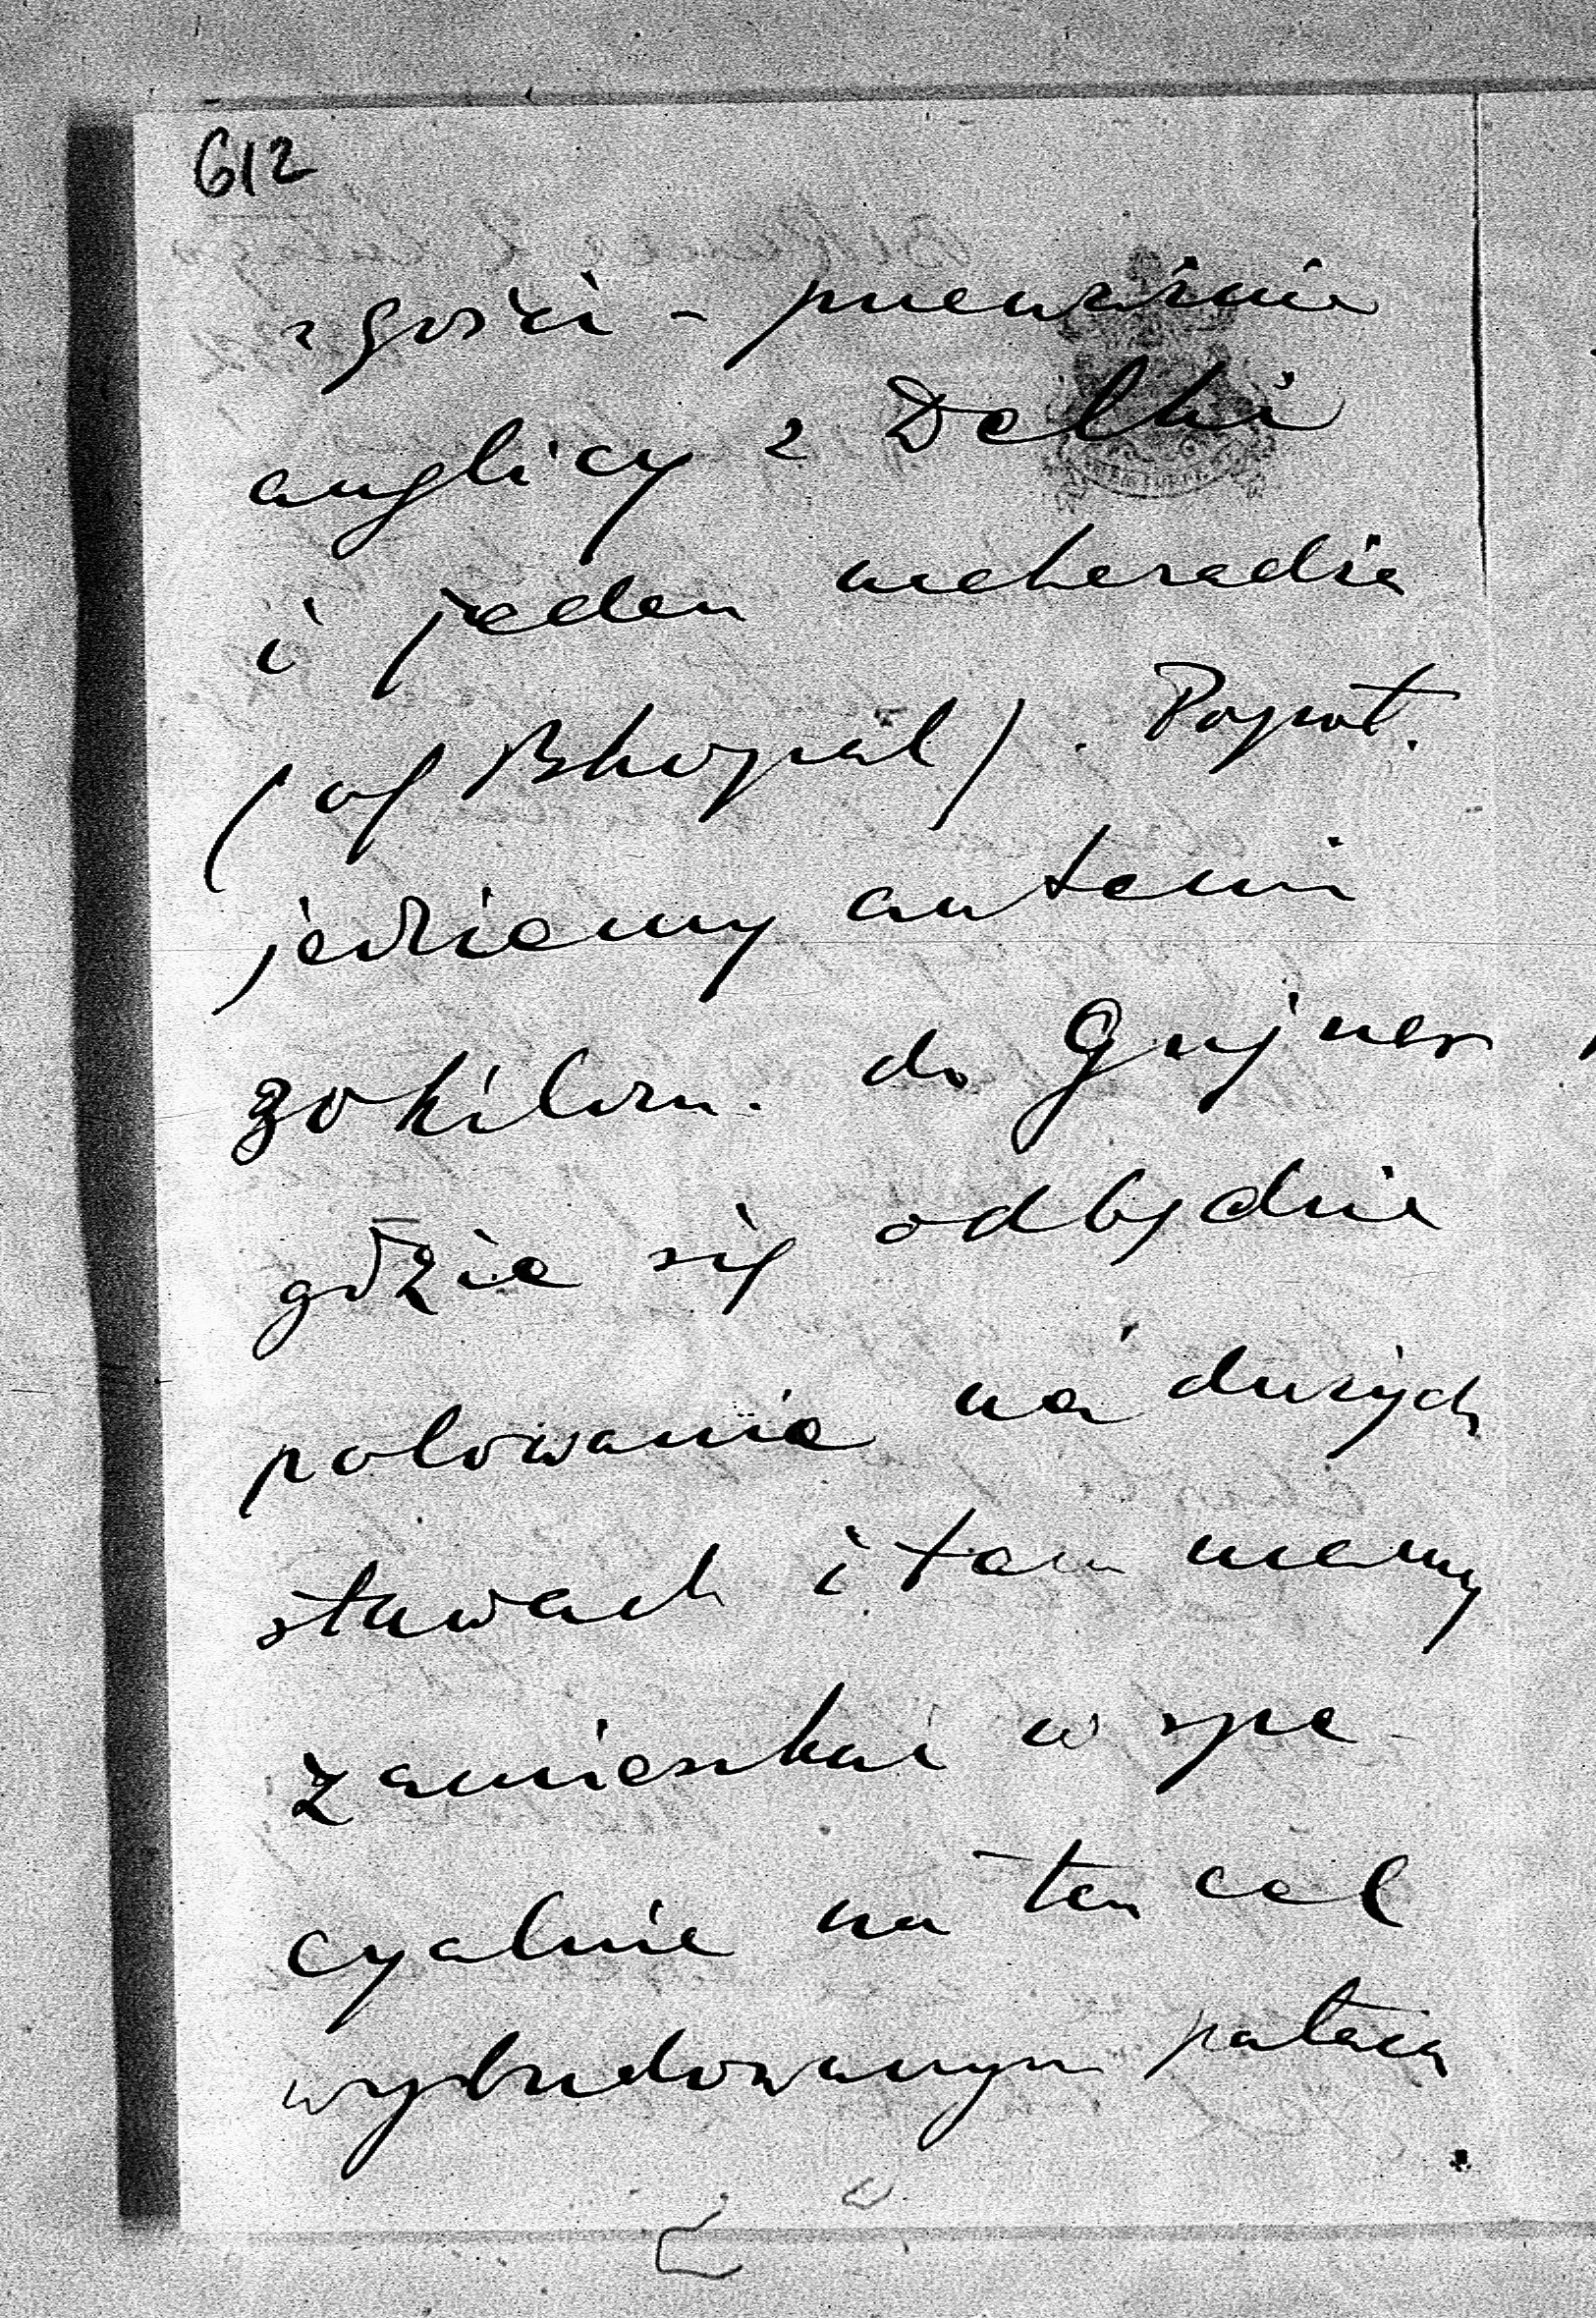 612
z gości – przeważnie
anglicy z Delhi
i jeden maharadża
(of Bhopal). Popoł.
jedziemy autami
30 kilom. do Gujner
gdzie się odbędzie
polowanie na dużych
stawach i tam mamy
zamieszkać w spe-
cyalnie na ten cel
wybudowanym pałacu